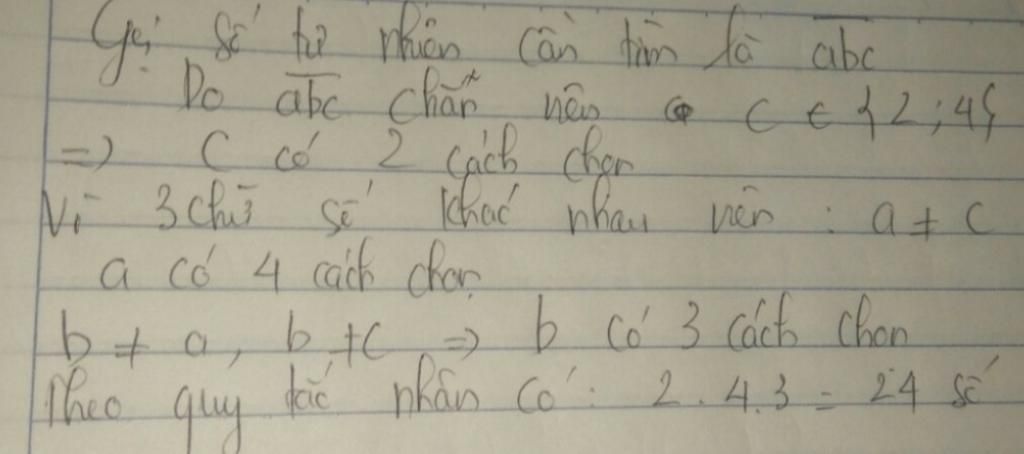 Gọi số tự nhiên cần tìm là abc
Do abc chẵn nên c ∈ {2;4}
=> C có 2 cách chọn
Vì 3 chữ số khác nhau nên : a ≠ c
a có 4 cách chọn
b ≠ a, b ≠ c => b có 3 cách chọn
Theo quy tắc nhân có : 2 . 4 . 3 = 24 số